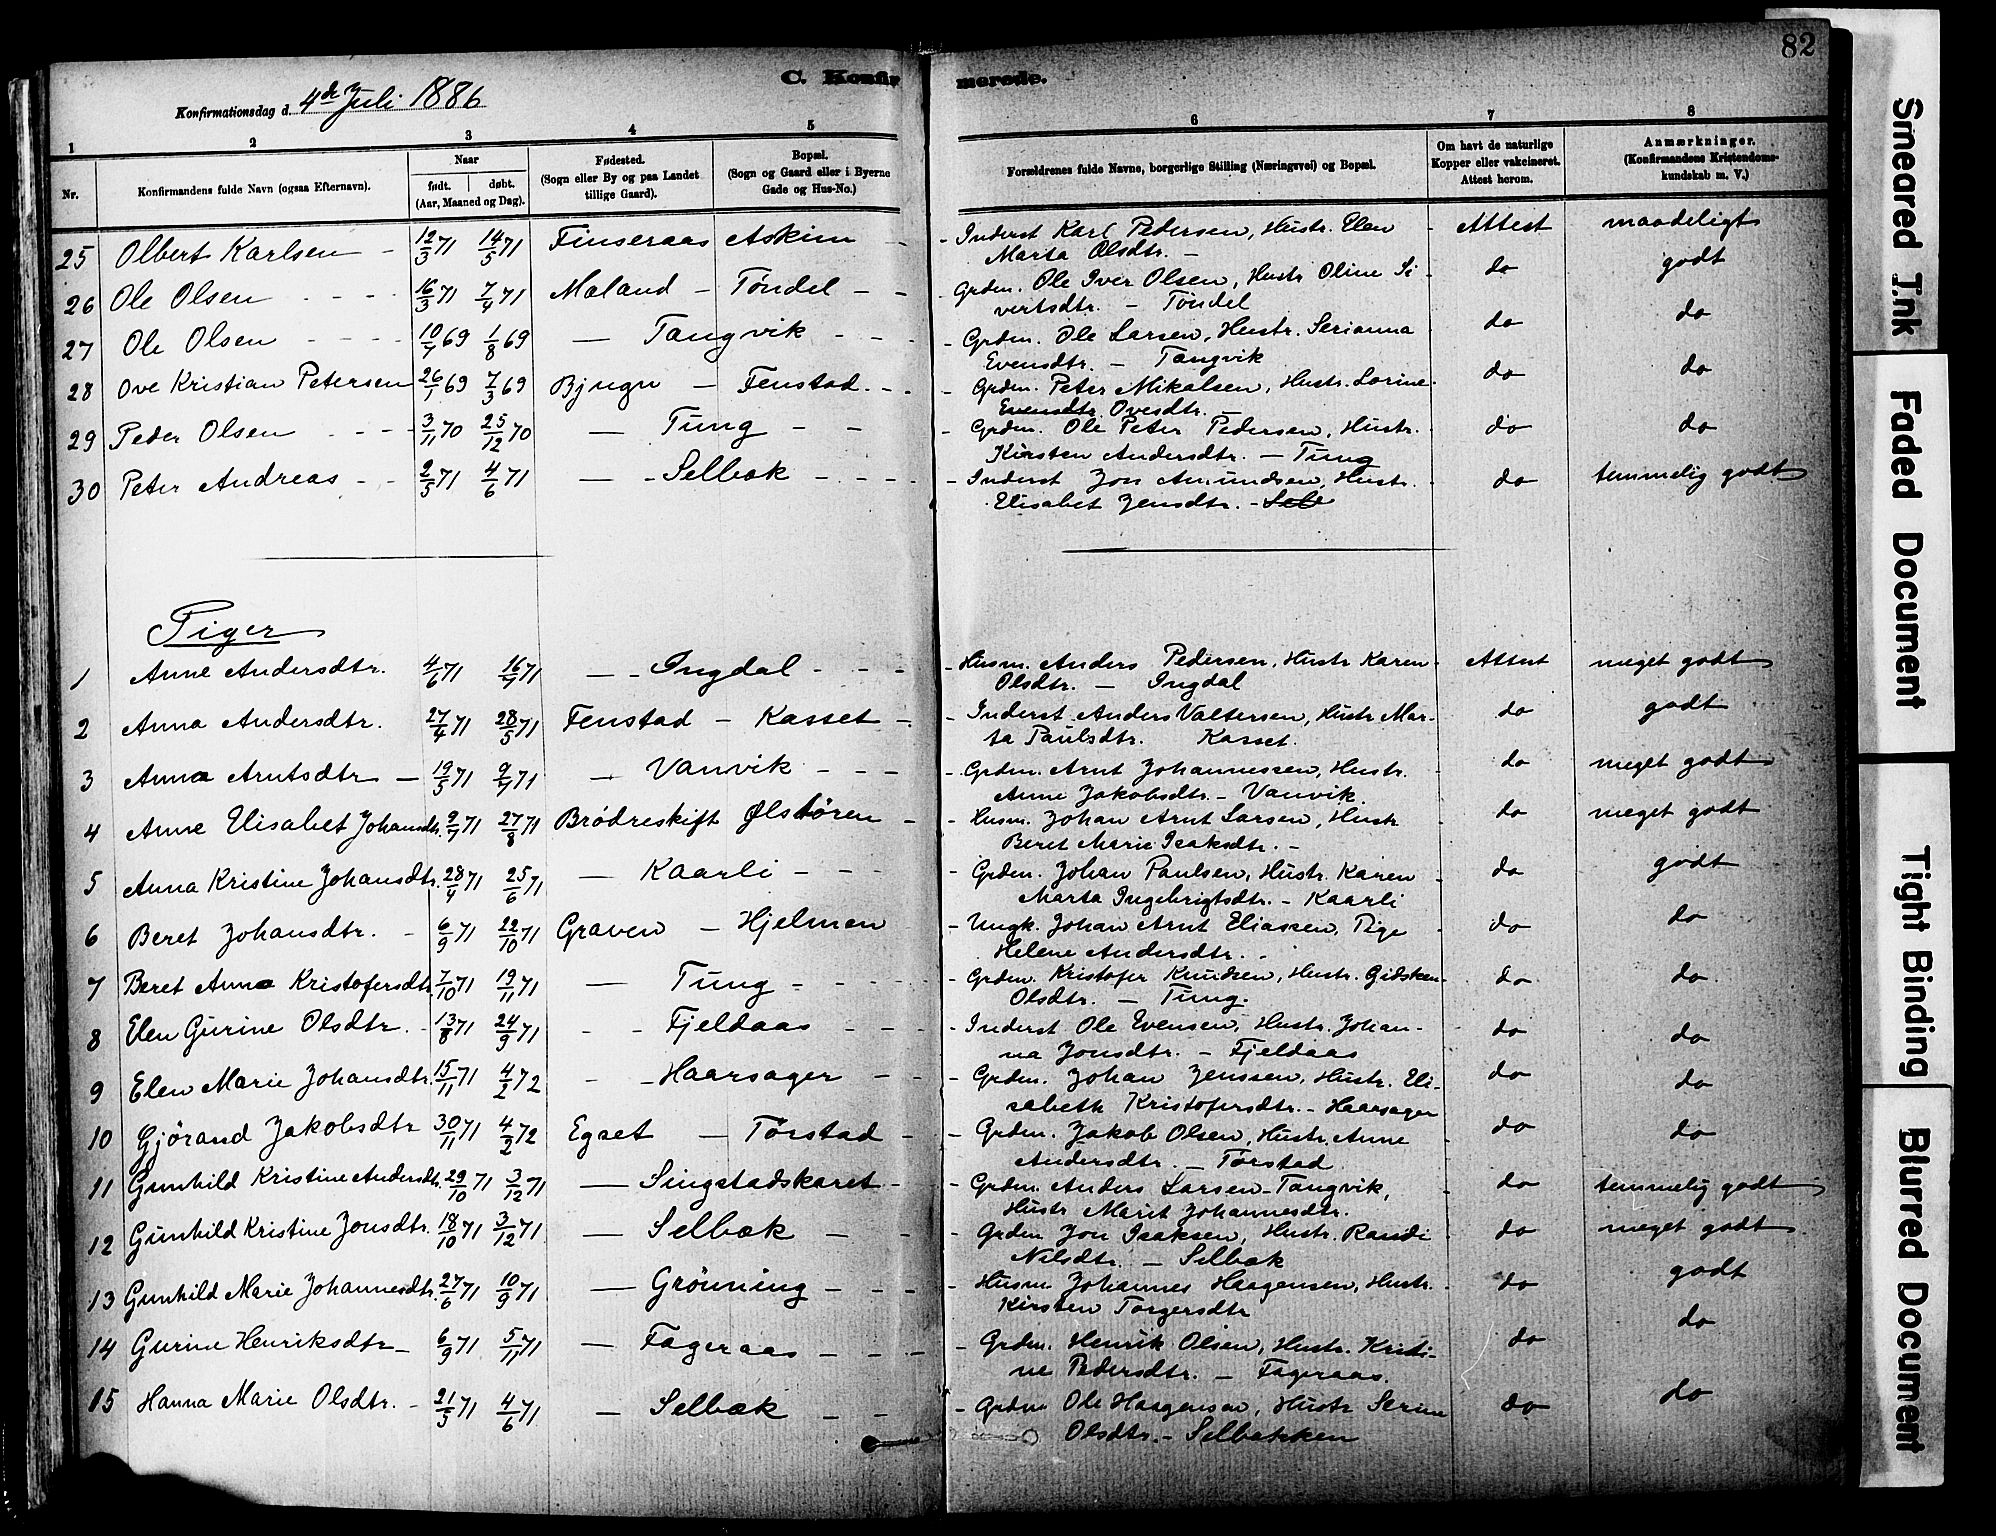 82
C. Konfirmerede.
Konfirmationsdag d. 4de Juli 1886
1 2 3 4 5 6 7 8
Nr. Konfirmandens fulde Navn (ogsaa Efternavn). Naar født. døbt. (Aar, Maaned og Dag). Fødested. (Sogn eller By og paa Landet tillige Gaard). Bopæl. (Sogn og Gaard eller i Byerne Gade og Hus-No.) Forældrenes fulde Navne, borgerlige Stilling (Næringsvei) og Bopæl. Om havt de naturlige Kopper eller vakcineret. Attest herom. Anmærkninger. (Konfirmandens Kristendomskundskab m. V.)
25 Olbert Karlsen - 12/3 71 14/5 71 Finseraas Askim - - Inderst Karl Pedersen, Hustr. Elen - Attest maadeligt
Marta Olsdtr. -
26 Ole Olsen - - - 16/3 71 7/4 71 Moland - Töndel - - Grdm. Ole Iver Olsen, Hustr Oline Si- do godt
vertsdtr. - Töndel
27 Ole Olsen - - - 10/7 69 1/8 69 — Tangvik - - - Grdm. Ole Larsen, Hustr. Serianna do do
Evensdtr. - Tangvik
28 Ove Kristian Petersen 26/1 69 7/3 69 Bjugn - Fenstad - - - Grdm. Peter Mikalsen, Hustr. Lorine do do
Evensdtr. Ovesdtr.
29 Peder Olsen - - - 3/11 70 25/12 70 — Tung - - - Grdm. Ole Peter Pedersen, Hustr. do do
Kirsten Andersdtr. - Tung
30 Peter Andreas - - 2/5 71 4/6 71 — Selbæk - - - - Inderst Jon Amundsen, Hustr. do temmelig godt
Elisabet Jensdtr. - Selb
Piger
1 Anne Andersdtr. 4/6 71 16/7 71 — Ingdal - - - - Husm. Anders Pedersen, Hustr Karen Attest meget godt
Olsdtr. - Ingdal
2 Anna Andersdtr. 27/4 71 28/5 71 Fenstad - Kasset - - Inderst Anders Valtersen, Hustr Mar- do godt
ta Paulsdtr. Kasset.
3 Anna Arntsdtr - 19/5 71 9/7 71 — Vanvik - - - - Grdm. Arnt Johannessen, Hustr. do meget godt
Anne Jakobsdtr. - Vanvik.
4 Anne Elisabet Johansdtr. 9/7 71 27/8 71 Brödreskift Ølstören - - Husm. Johan Arnt Larsen, Hustr do meget godt
Beret Marie Isaksdtr. -
5 Anna Kristine Johansdtr. 28/4 71 25/6 71 — Kaarli - - - - Grdm. Johan Paulsen, Hustr. Karen do godt
Marta Ingebrigtsdtr. - Kaarli
6 Beret Johansdtr. - 6/9 71 22/10 71 Graven - Hjelmen - Ungk. Johan Arnt Eliassen, Pige do do
Helene Andersdtr. -
7 Beret Anna Kristofersdtr. 7/10 71 19/11 71 — Tung - - - Grdm. Kristofer Knudsen, Hustr. Gidsken do do
Olsdtr. - Tung.
8 Elen Gurine Olsdtr. - 13/8 71 24/9 71 - - Fjeldaas - - - - Inderst Ole Evensen, Hustr. Johan- do do
na Jonsdtr. - Fjeldaas
9 Elen Marie Johansdtr. 15/11 71 4/2 72 - - Haarsager - - - Grdm. Johan Jenssen, Hustr. Eli- do do
sabeth Kristofersdtr. - Haarsager
10 Gjörand Jakobsdtr 30/11 71 4/2 72 Egset - Törstad - - Grdm. Jakob Olsen, Hustr. Anne do do
Andersdtr. - Törstad
11 Gunhild Kristine Andersdtr. 29/10 71 3/12 71 — Singstadskaret - - Grdm. Anders Larsen - Tangvik, do temmelig godt
Hustr Marit Johannesdtr.
12 Gunhild Kristine Jonsdtr. 18/10 71 3/12 71 — Selbæk - - - Grdm Jon Isaksen, Hustr. Randi do meget godt
Nilsdtr. - Selbæk
13 Gunhild Marie Johannesdtr. 27/6 71 10/9 71 — Grönning - - - Husm Johannes Haagensen, Hustr. do godt
Kirsten Torgersdtr
14 Gurine Henriksdtr - 6/9 71 5/11 71 — Fageraas - - - - Grdm. Henrik Olsen, Hustr. Kristi- do do
ne Pedersdtr. - Fageraas.
15 Hanna Marie Olsdtr. - 21/5 71 4/6 71 — Selbæk - - - Grdm Ole Haagensen, Hustr Serine do do
Olsdtr. - Selbækken
Smeared Ink
Faded Document
Tight Binding
Blurred Document